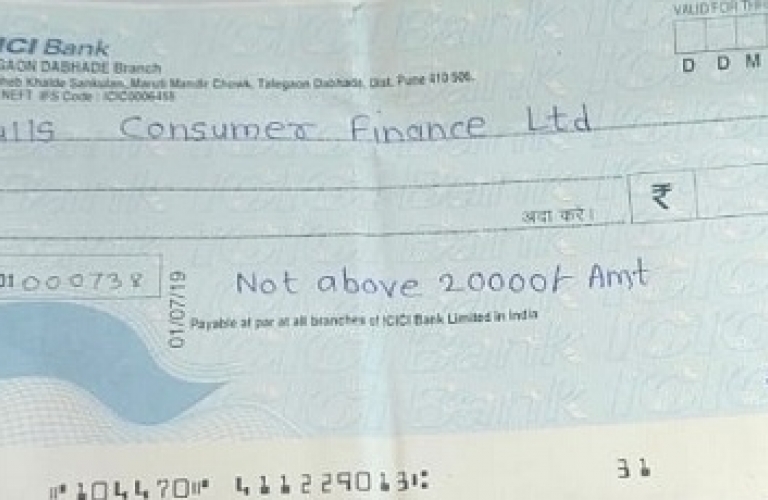 ICICI Bank
GAON DABHADE Branch
Maruti Mandir Chowk, Talegaon Dabhade, Dist. Pune 410 506.
NEFT IFS Code : ICIC0006458
VALID FOR THR
D D M
ulls Consumer Finance Ltd
अदा करें।
₹
01000738
01/07/19
Not above 20000/- Amt
Payable at par at all branches of ICICI Bank Limited in India
⑈104470⑈ 411229013⑆ 31